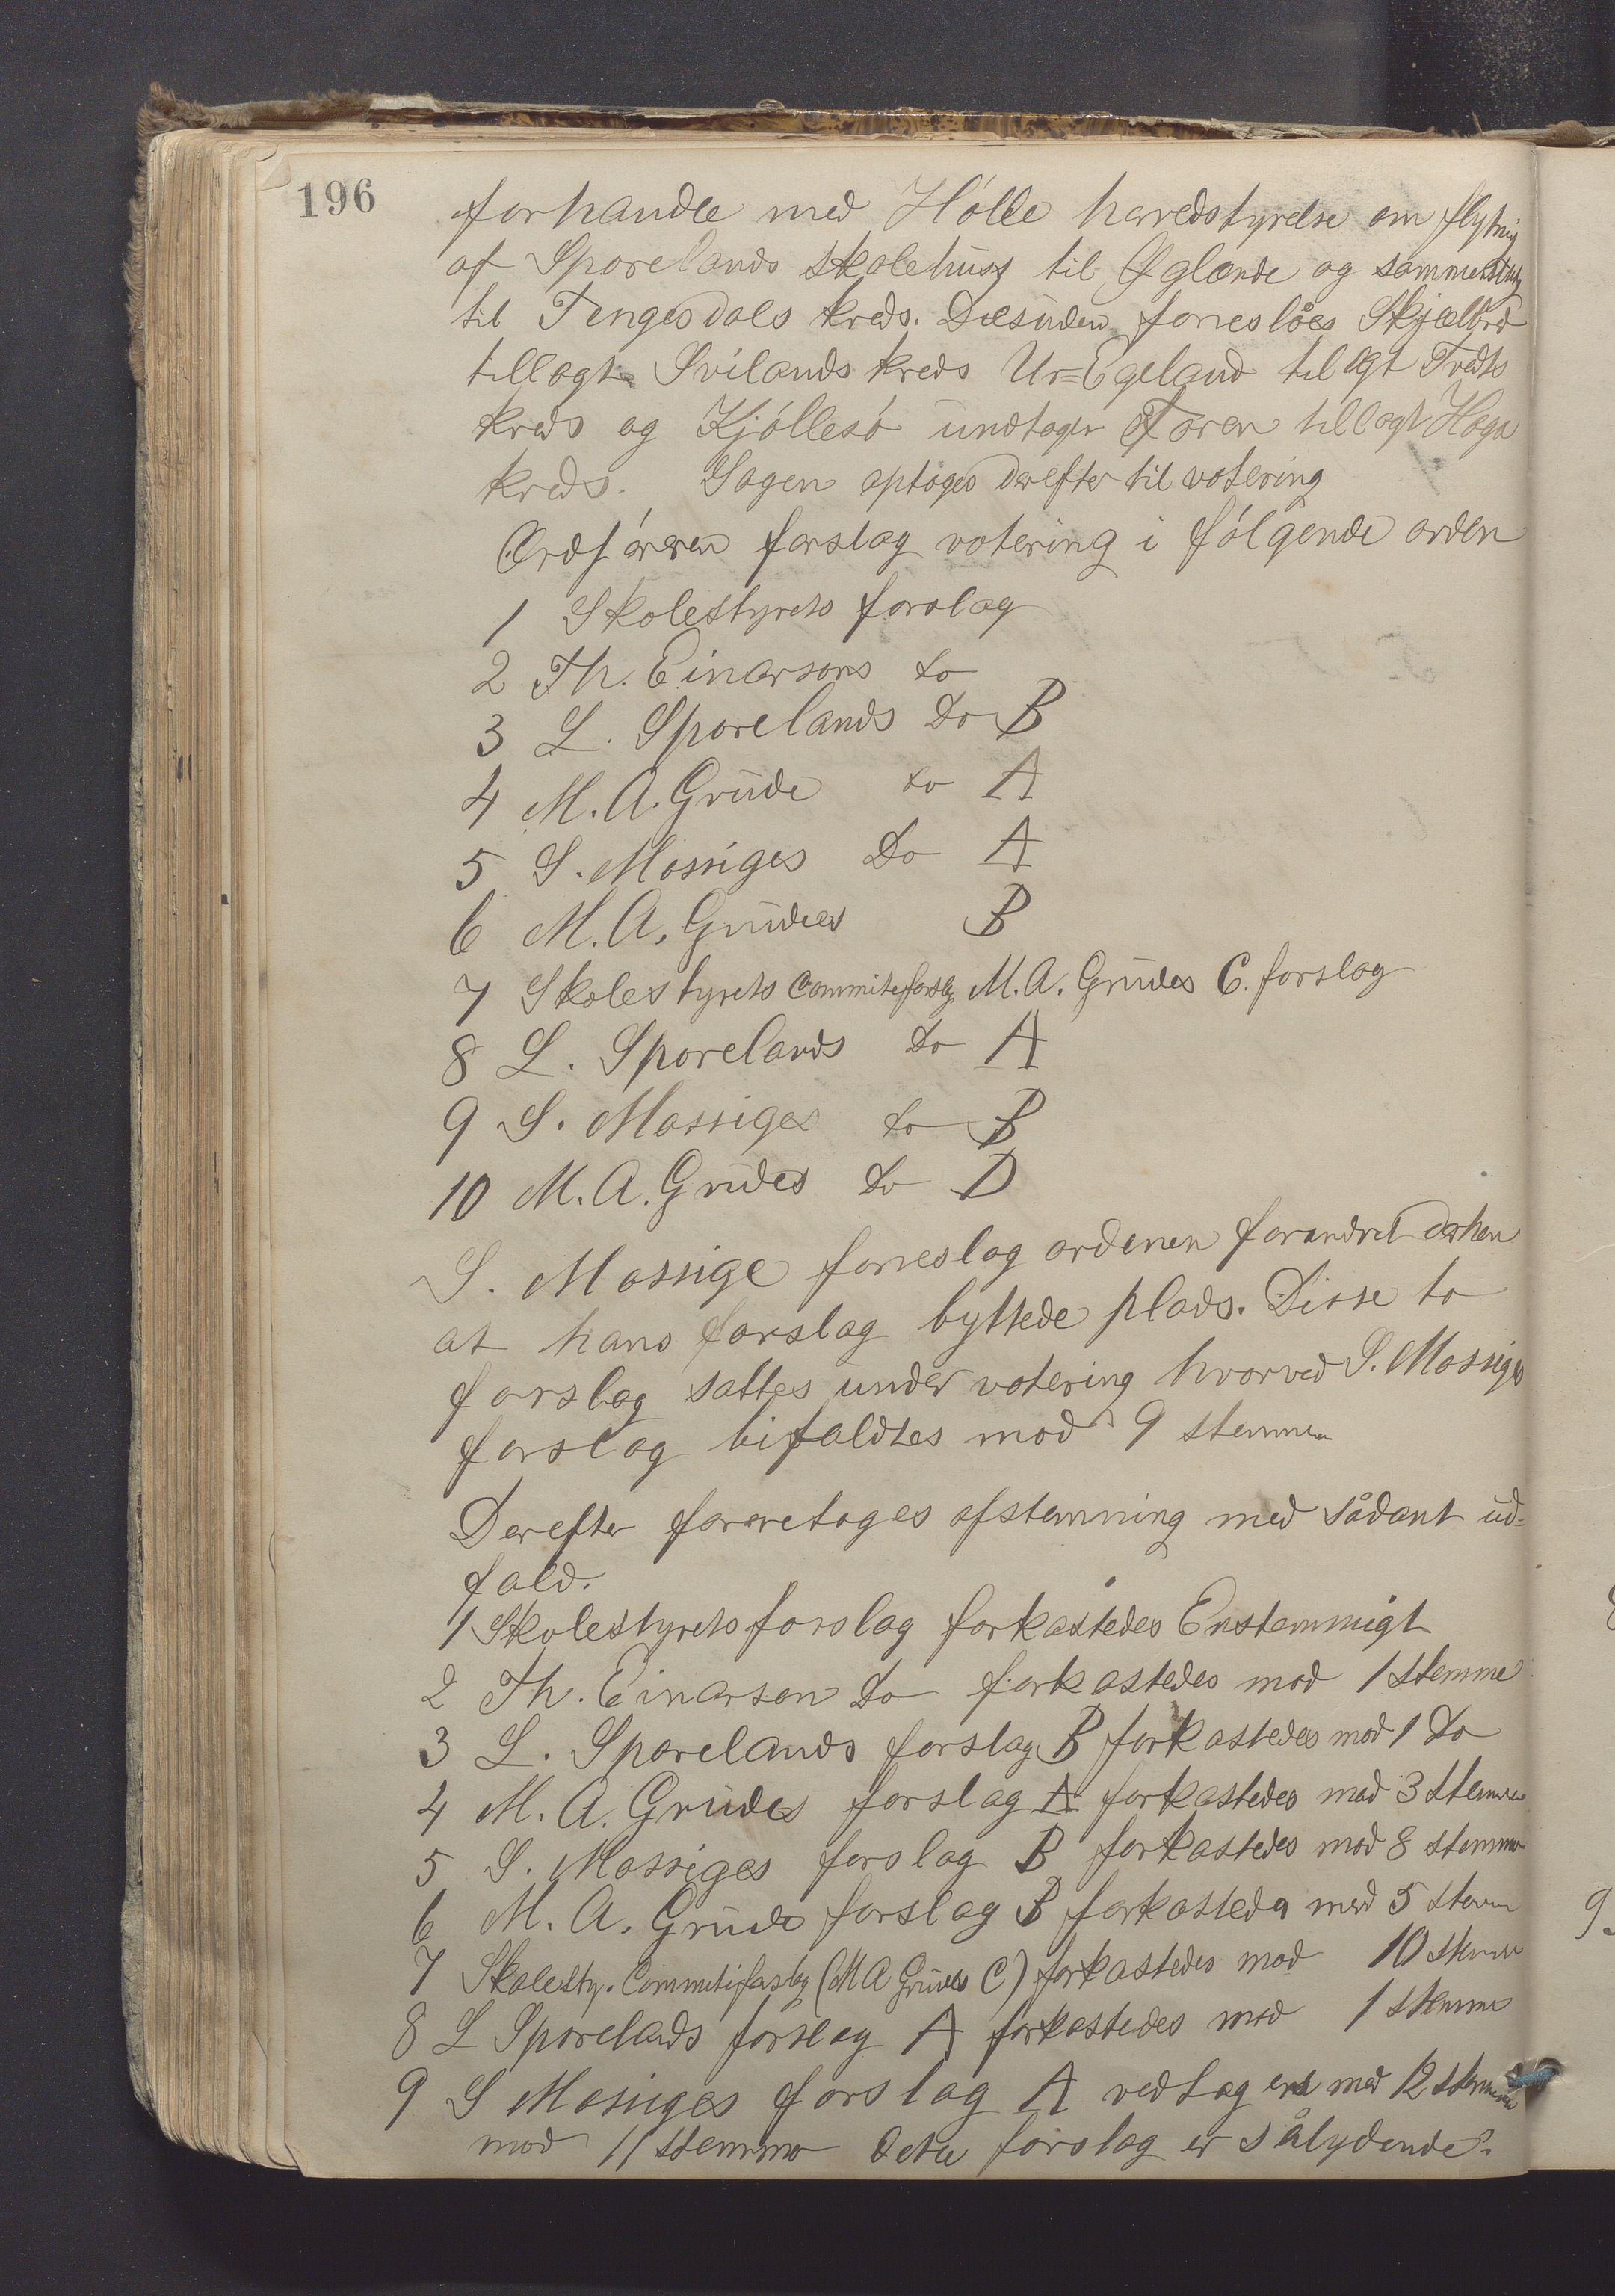 196
forhandle med Hølle heredstyrelse om flytnig
af Sporelands Skolehuss til Øglænde og sammenslutg
til Tengesdals kreds. Desuden foreslåes Skjælbred
tillagt Svilands kreds Ur=Egeland tilagt Tvedts
kreds og Kjøllesø undtagen Foren tillagt Haga
kreds. Sagen optoges derefter til votering
Ordføreren forslag votering i følgende orden
1 Skolestyrets forslag
2 Th. Einarsons do
3 L. Sporelands Do B
4 M. A. Grude do A
5 S. Mossiges Do A
6 M. A. Grudes B
7 Skolestyrets Commiteforslg M. A. Grudes C. forslag
8 L. Sporelands do A
9 S. Mossiges do B
10 M. A. Grudes do D
S. Mossige foreslog ordenen forandret derhen
at hans forslag byttede plads. Disse to
forslag sattes under votering hvorved S. Mossiges
forslag bifaldtes mod 9 stemmer
Derefter foretoges afstemning med sådant ud=
fald.
1 Skolestyrets forslag forkastedes Enstemmigt
2 Th. Einarson Do forkastedes mod 1 stemme
3 L. Sporelands forslag B forkastedes mod 1 Do
4 M. A. Grudes forslag A forkastedes mod 3 stemmer
5 S. Mossiges forslag B forkastedes mod 8 stemmer
6 M. A. Grude forslag B forkastedes med 5 stemmer
7 Skolesty. Commiteforslag (M A Grudes C) forkastedes mod 10 stemmer
8 L Sporelands forslag A forkastedes mod 1 stemme
9 S Mossiges forslag A vedtog med 12 stemmer
mod 11 stemmer Dette forslag er sålydende: